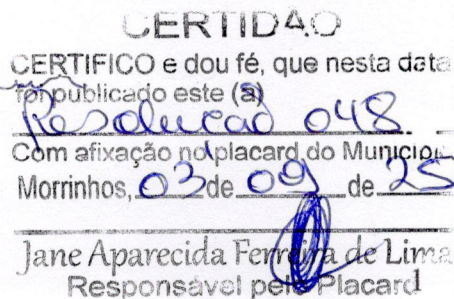 CERTIDÃO
CERTIFICO e dou fé, que nesta data
foi publicado este (a)
Resolucão 048
Com afixação no placard do Município
Morrinhos, 03 de 09 de 25
Jane Aparecida Ferreira de Lima
Responsável pelo Placard